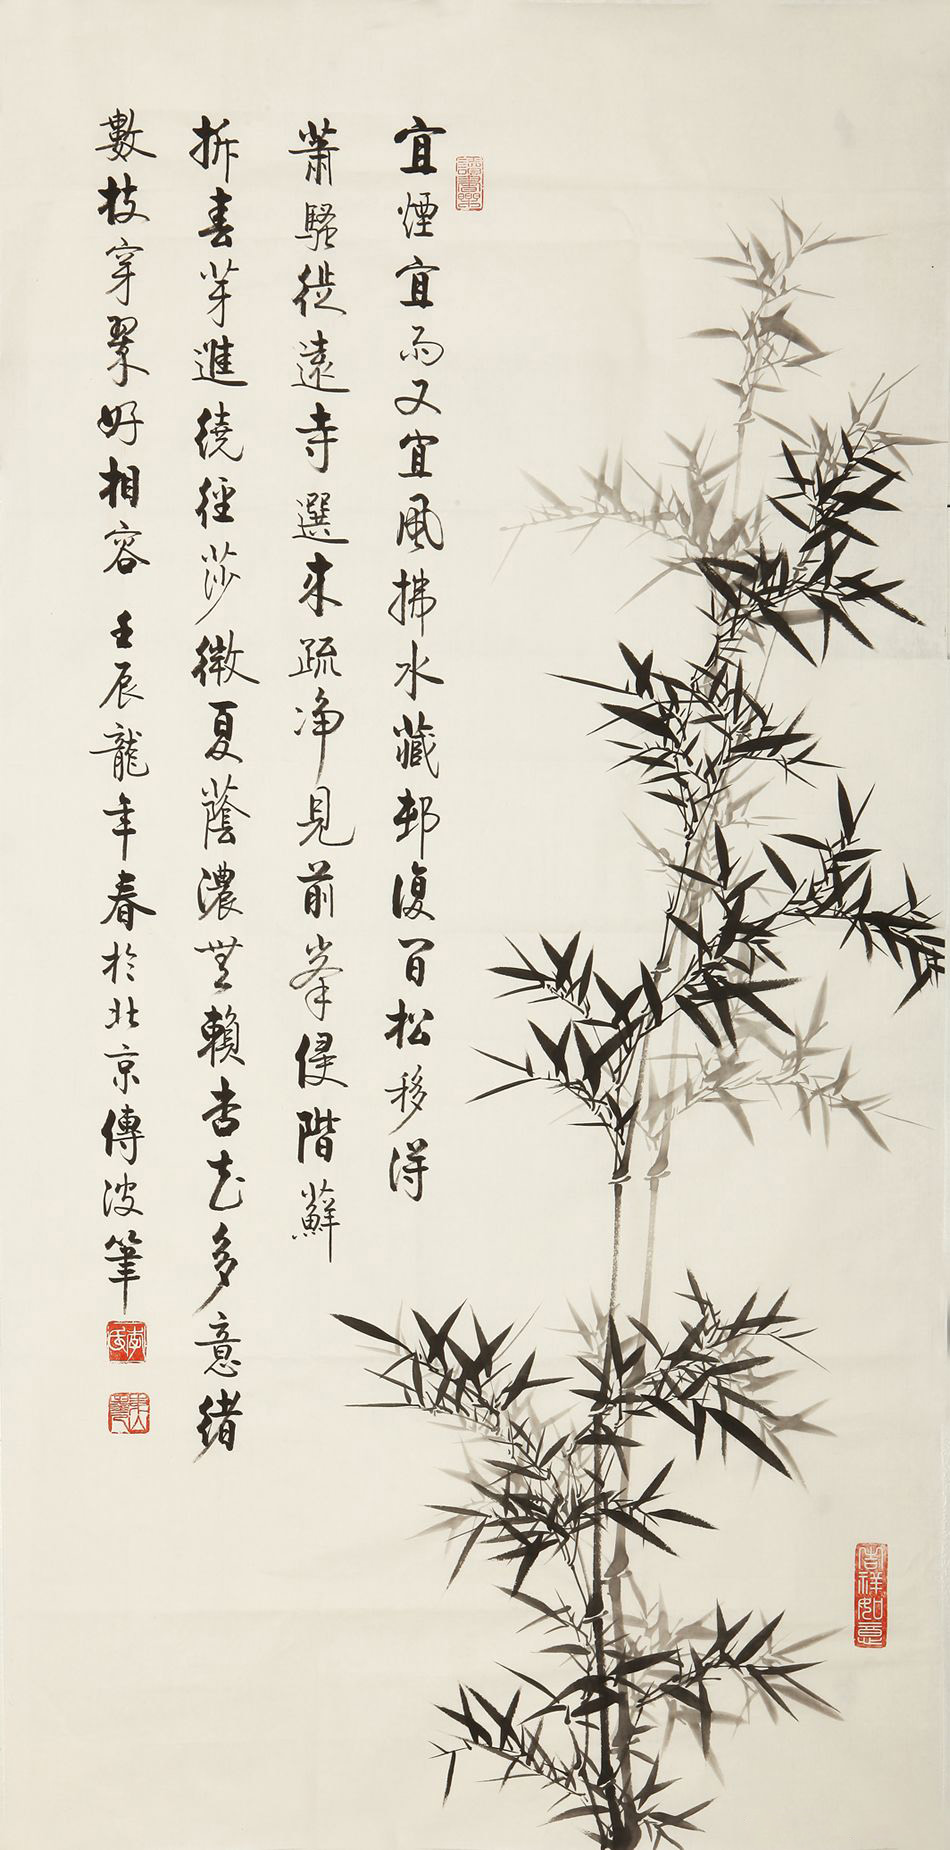 讀書樂
宜煙宜雨又宜風拂水藏邨復間松移得
蕭騷從遠寺選來疏淨見前峯侵階蘚
拆春芽進繞徑莎微夏蔭濃無賴杏花多意緒
數枝穿翠好相容 壬辰龍年春於北京傳波筆
吉祥如意